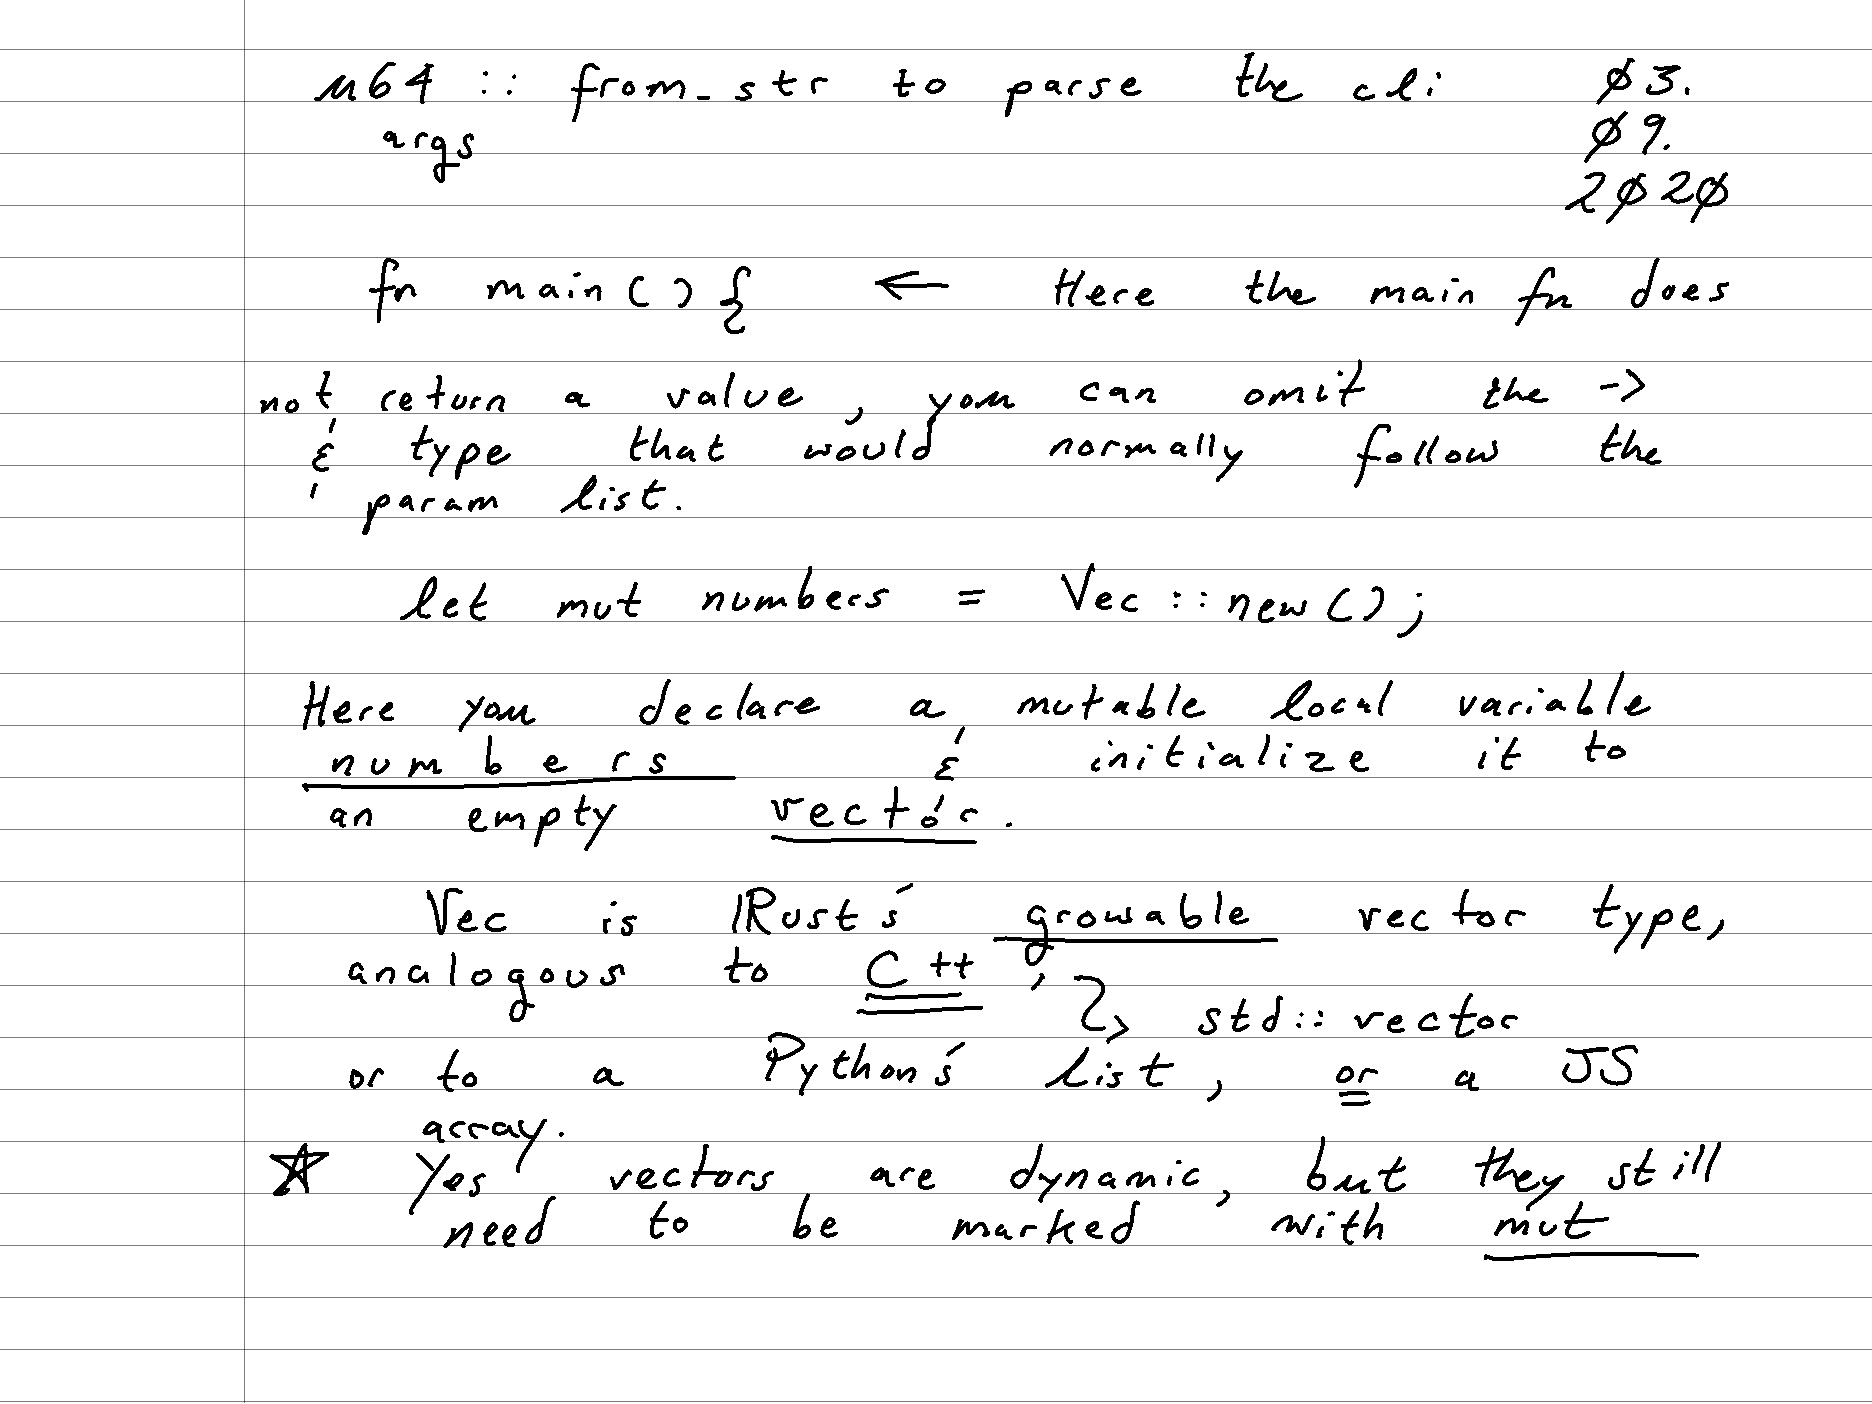 u64 :: from_str to parse the cli Ø3.
args Ø9.
2Ø2Ø
fn main() { ← Here the main fn does
not return a value, you can omit the ->
& type that would normally follow the
param list.
let mut numbers = Vec::new();
Here you declare a mutable local variable
numbers & initialize it to
an empty vector.
Vec is Rust's growable vector type,
analogous to C++,
std::vector
or to a Python's list, or a JS
array.
☆ Yes vectors are dynamic, but they still
need to be marked with mut